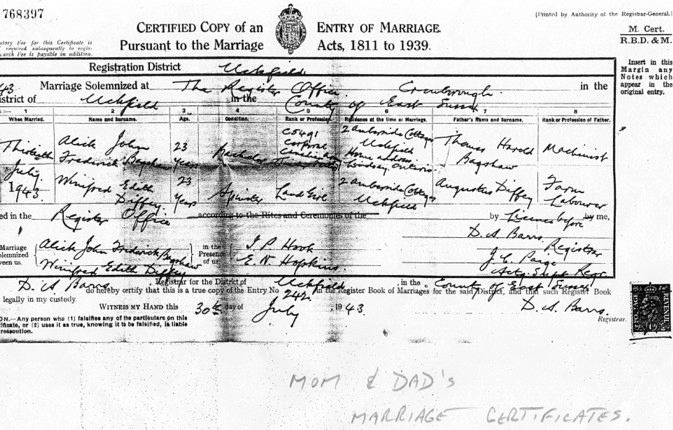 768397
CERTIFIED COPY of an ENTRY OF MARRIAGE.
Pursuant to the Marriage Acts, 1811 to 1939.
(Printed by Authority of the Registrar-General.)
M. Cert.
R.B.D. & M.
Insert in this
Margin any
Notes which
appear in the
original entry.
Registration District Uckfield
Marriage Solemnized at The Register Office Crowborough in the
District of Uckfield in the County of East Sussex
1 2 3 4 5 6 7 8
When Married. Name and Surname. Age. Condition. Rank or Profession. Residence at the time of Marriage. Father's Name and Surname. Rank or Profession of Father.
Thirtieth July 1943
Alick John Frederick Bagshaw 23 Years Bachelor C5491 Corporal Canadian 2 Ambroside Cottages Uckfield Home address Lindsay Ontario Thomas Harold Bagshaw Machinist
Winifred Edith Diffey 23 Years Spinster Land Girl 2 Ambroside Cottages Uckfield Augustus Diffey Farm Labourer
Married in the Register Office according to the Rites and Ceremonies of the by Licence before by me,
Marriage Solemnized between us, Alick John Frederick Bagshaw Winifred Edith Diffey
in the Presence of us, E. N. Hopkins
D. A. Barrs Registrar
J. C. Paige
Acty Supt Regr
D. A. Barrs Registrar for the District of Uckfield, in the County of East Sussex
do hereby certify that this is a true copy of the Entry No 242, in the Register Book of Marriages for the said District, and that such Register Book
legally in my custody
WITNESS MY HAND this 30th day of July, 1943. D. A. Barrs
Registrar.
CAUTION.—Any person who (1) falsifies any of the particulars on this
certificate, or (2) uses it as true, knowing it to be falsified, is liable
to prosecution.
MOM & DAD'S
MARRIAGE CERTIFICATES.